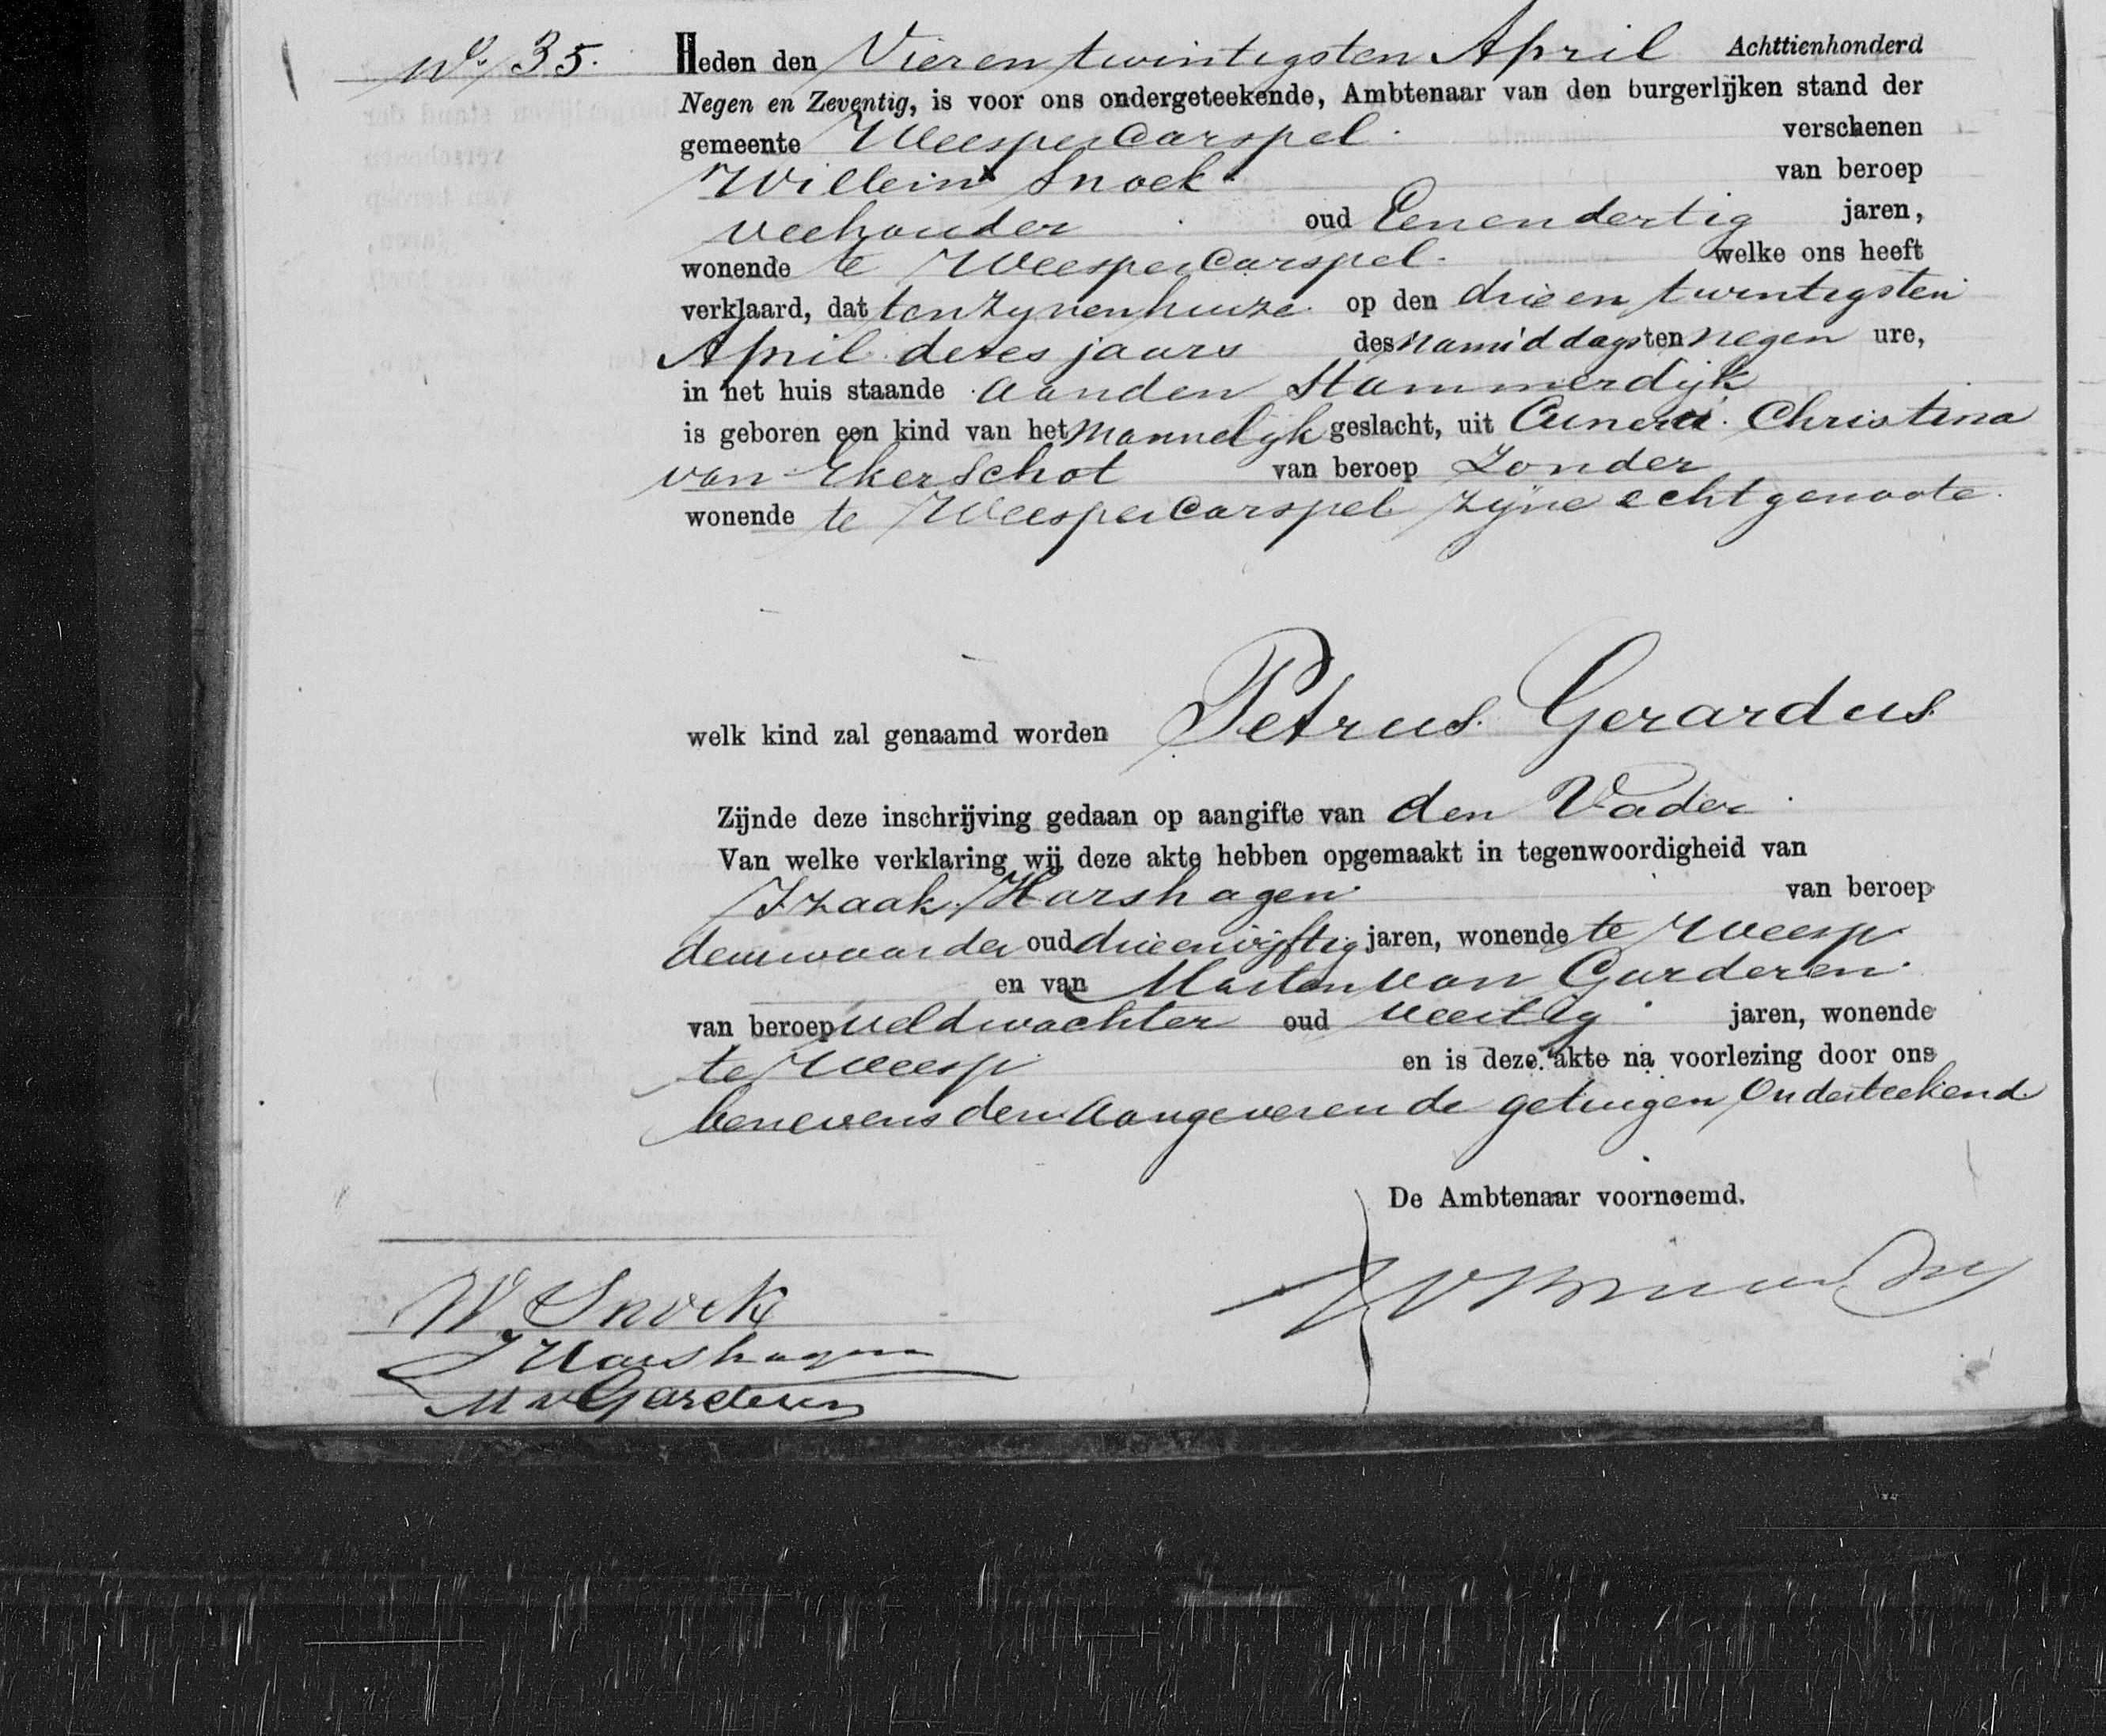 No. 35. Heden den Vierentwintigsten April Achttienhonderd
Negen en Zeventig, is voor ons ondergeteekende, Ambtenaar van den burgerlijken stand der
gemeente Weespercarspel. verschenen
Willem Snoek van beroep
veehouder oud Eenendertig jaren,
wonende te Weespercarspel. welke ons heeft
verklaard, dat ten zynen huize op den drieentwintigsten
April dezes jaars des namiddags ten negen ure,
in het huis staande aan den Stammerdijk
is geboren een kind van het mannelijk geslacht, uit Cunera Christina
van Ekerschot van beroep zonder
wonende te Weespercarspel zijne echtgenoote.
welk kind zal genaamd worden Petrus Gerardus.
Zijnde deze inschrijving gedaan op aangifte van den Vader
Van welke verklaring wij deze akte hebben opgemaakt in tegenwoordigheid van
Izaak Harshagen van beroep
deurwaarder oud drieenvijftig jaren, wonende te Weesp
en van Marten van Garderen.
van beroep veldwachter oud veertig jaren, wonende
te Weesp en is deze akte na voorlezing door ons
benevens den Aangever en de getuigen Onderteekend.
De Ambtenaar voornoemd.
W. Snoek
I Harshagen
M v Garderen